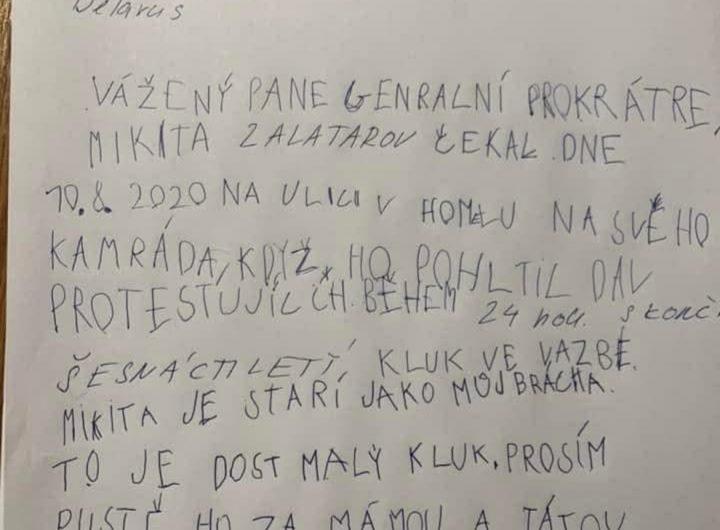 Belarus
VÁŽENÝ PANE GENRALNÍ PROKRÁTRE,
MIKITA ZALATAROV ČEKAL DNE
10.8. 2020 NA ULICI V HOMELU NA SVÉHO
KAMRÁDA, KDYŽ HO POHLTIL DAV
PROTESTUJÍCÍCH. BĚHEM 24 hod. skonč
ŠESNÁCTILETÍ, KLUK VE VAZBĚ.
MIKITA JE STARÍ JAKO MŮJ BRÁCHA.
TO JE DOST MALÝ KLUK. PROSÍM
PUSŤE HO ZA MÁMOU A TÁTOU